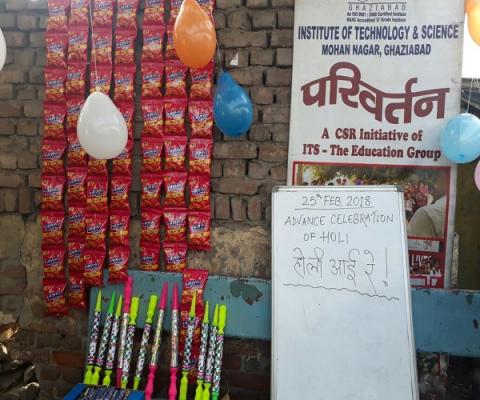 GHAZIABAD
INSTITUTE OF TECHNOLOGY & SCIENCE
MOHAN NAGAR, GHAZIABAD
परिवर्तन
A CSR Initiative of
ITS - The Education Group
25th FEB, 2018
ADVANCE CELEBRATION
OF HOLI
होली आई रे!